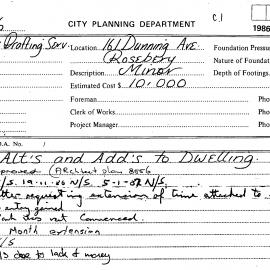 CITY PLANNING DEPARTMENT C.1 1986
Drafting Serv. Location 161 Dunning Ave Foundation Pressu
Rosebery Nature of Foundat
Description Minor Depth of Footings
Estimated Cost $ 10,000
Foreman Pho
Clerk of Works Pho
Project Manager Pho
D.A. No. /
Alt's and Add's to DWELLING.
approved (Architect plan 8556
/S. 19-11-86 N/S 5-1-87 N/S
requesting extension of time attached to
entry gained
not Commenced.
Month extension
/S
due to lack of money